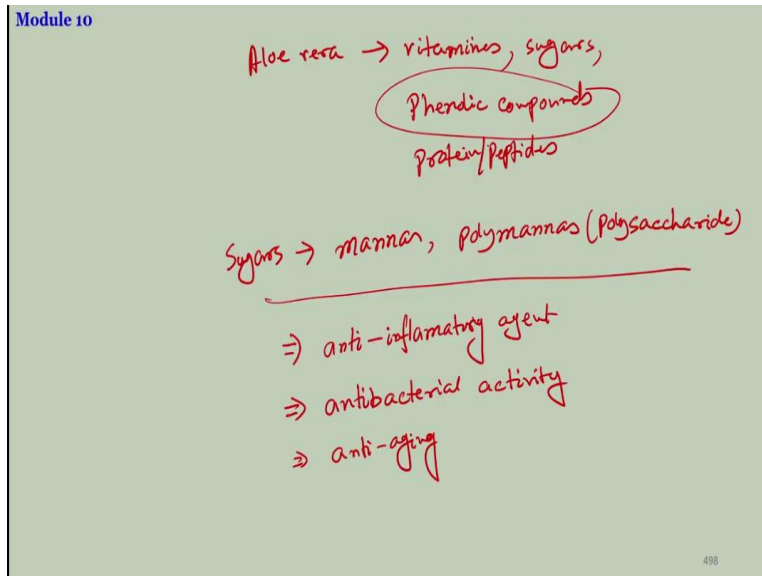 Module 10
Aloe vera → vitamines, sugars,
Phenolic compounds
Protein/Peptides
Sugars → mannan, polymannas (polysaccharide)
⇒ anti-inflamatory agent
⇒ antibacterial activity
⇒ anti-aging
498